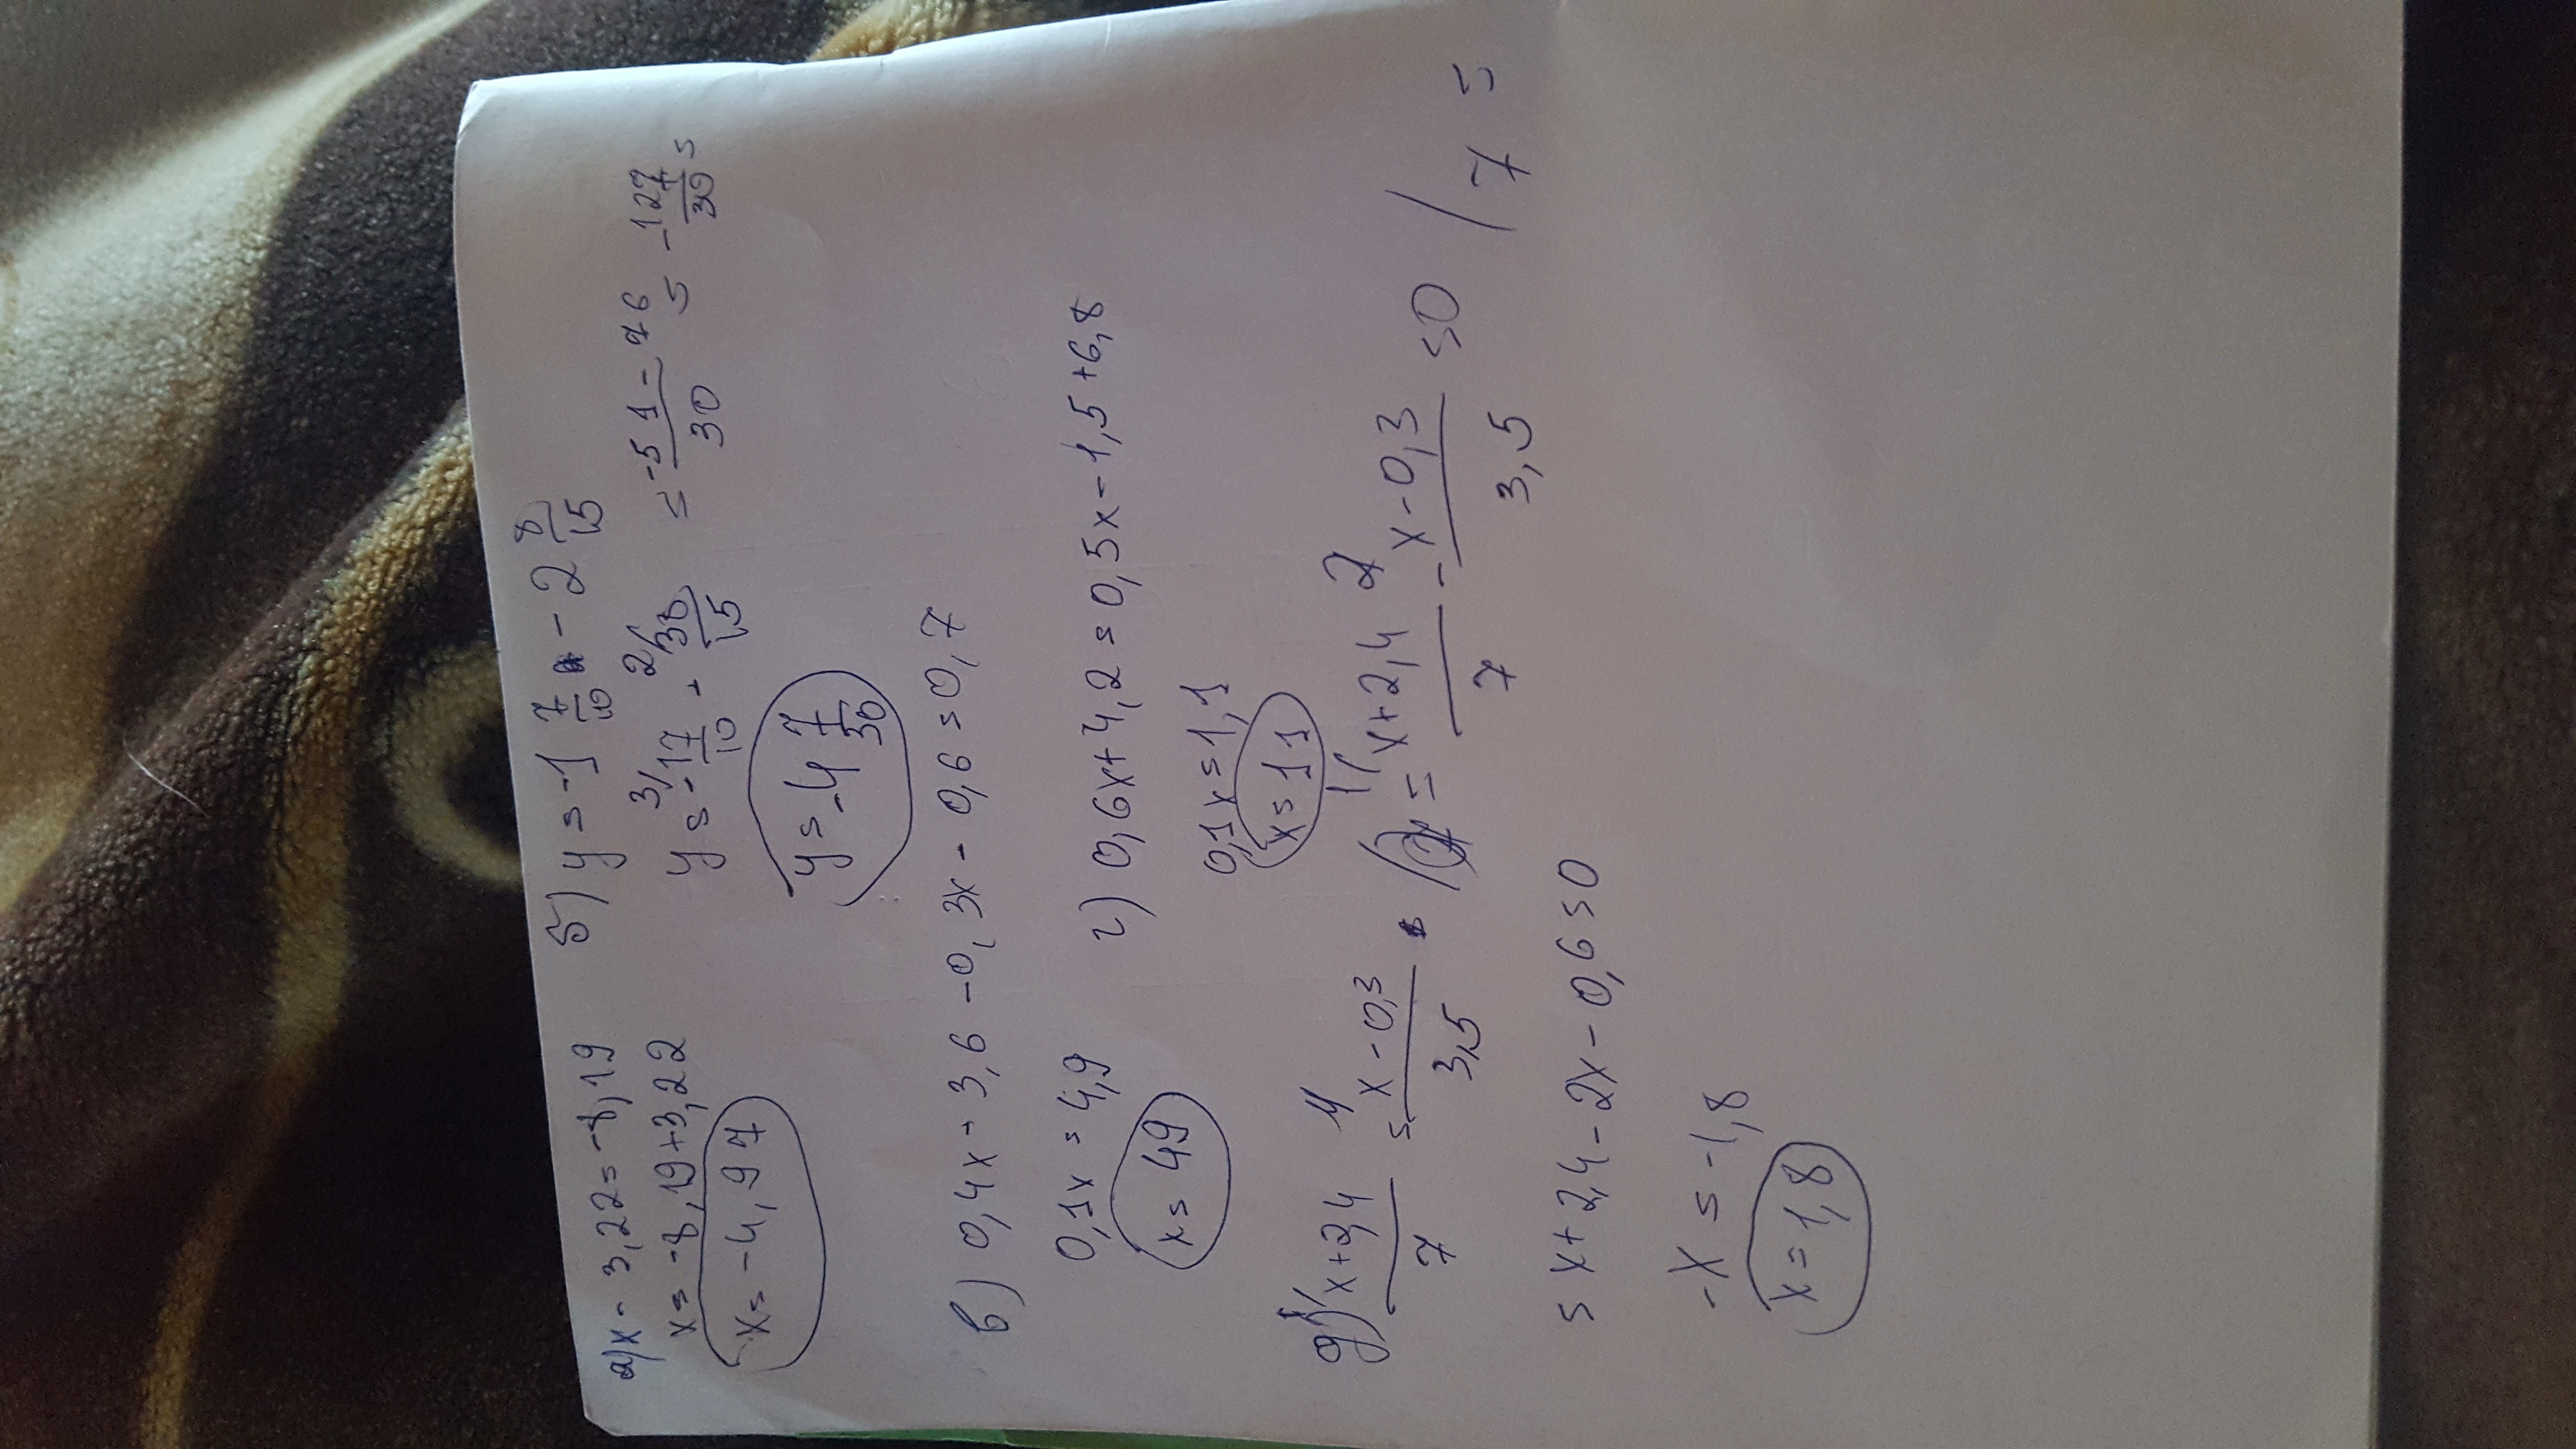 а) x - 3,22 = -8,19
x = -8,19+3,22
x = -4,97
б) y = -1 7/10 - 2 8/15
y = -17/10 + 38/15 = -51 - 76/30 = -127/30 =
y = -4 7/30
в) 0,4x - 3,6 - 0,3x - 0,6 = 0,7
0,1x = 4,9
x = 49
г) 0,6x+4,2 = 0,5x - 1,5+6,8
0,1x = 1,1
x = 11
д) x+2,4/7 = x - 0,3/3,5 = x+2,4/7 - x - 0,3/3,5 = 0 / 7 =
= x+2,4 - 2x - 0,6 = 0
-x = -1,8
x = 1,8